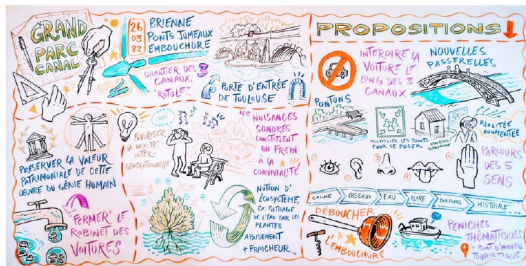 GRAND
PARC
CANAL
24
03
22
BRIENNE
PONTS JUMEAUX
EMBOUCHURE
QUARTIER DES 3
CANAUX,
"ROTULE"
PORTE D'ENTRÉE
DE TOULOUSE
PRÉSERVER LA VALEUR
PATRIMONIALE DE CETTE
ŒUVRE DU GÉNIE HUMAIN
"FERMER" LE
ROBINET DES
VOITURES
FAVORISER
LA MIXITÉ
INTER-
GÉNÉRATIONNELLE
LES NUISANCES
SONORES
CONSTITUENT
UN FREIN
À LA
CONVIVIALITÉ
NOTION
D'ÉCOSYSTÈME,
DE FILTRAGE
DE L'EAU PAR LES
PLANTES
APAISEMENT
+ FRAICHEUR...
PROPOSITIONS
INTERDIRE LA
VOITURE LE
LONG DES 3
CANAUX
NOUVELLES
PASSERELLES
PONTONS
MULTIPLIER LES POINTS
POUR SE POSER
RÉALITÉ
AUGMENTÉE
PARCOURS
DES 5
SENS
CALME
OISEAUX
EAU
FLORE
PARFUMS
HISTOIRE
DÉBOUCHER
L'EMBOUCHURE
PENICHES
THÉMATIQUES
+ POINT D'ACCUEIL
TOURISTIQUE